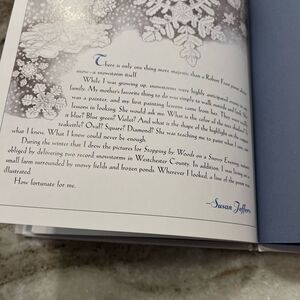 There is only one thing more majestic than a Robert Frost poem about
snow—a snowstorm itself.
While I was growing up, snowstorms were highly anticipated in my
family. My mother's favorite thing to do was simply to walk outside and
lessons in looking. She would ask me What is the color of the
was a painter, and my first painting lessons came from her. There were
is it? Blue? Blue green? Violet? And what is the shape of the highlight on the
teakettle? Oval? Square? Diamond? She was teaching me to paint what I
what I knew. What I knew could never be enough.
During the winter that I drew the pictures for Stopping by Woods on a Snowy Evening, nature
obliged by delivering two record snowstorms in Westchester County. In addition, I was living on a
small farm surrounded by snowy fields and frozen ponds. Wherever I looked, a line of the poem was
illustrated.
How fortunate for me.
—Susan Jeffers